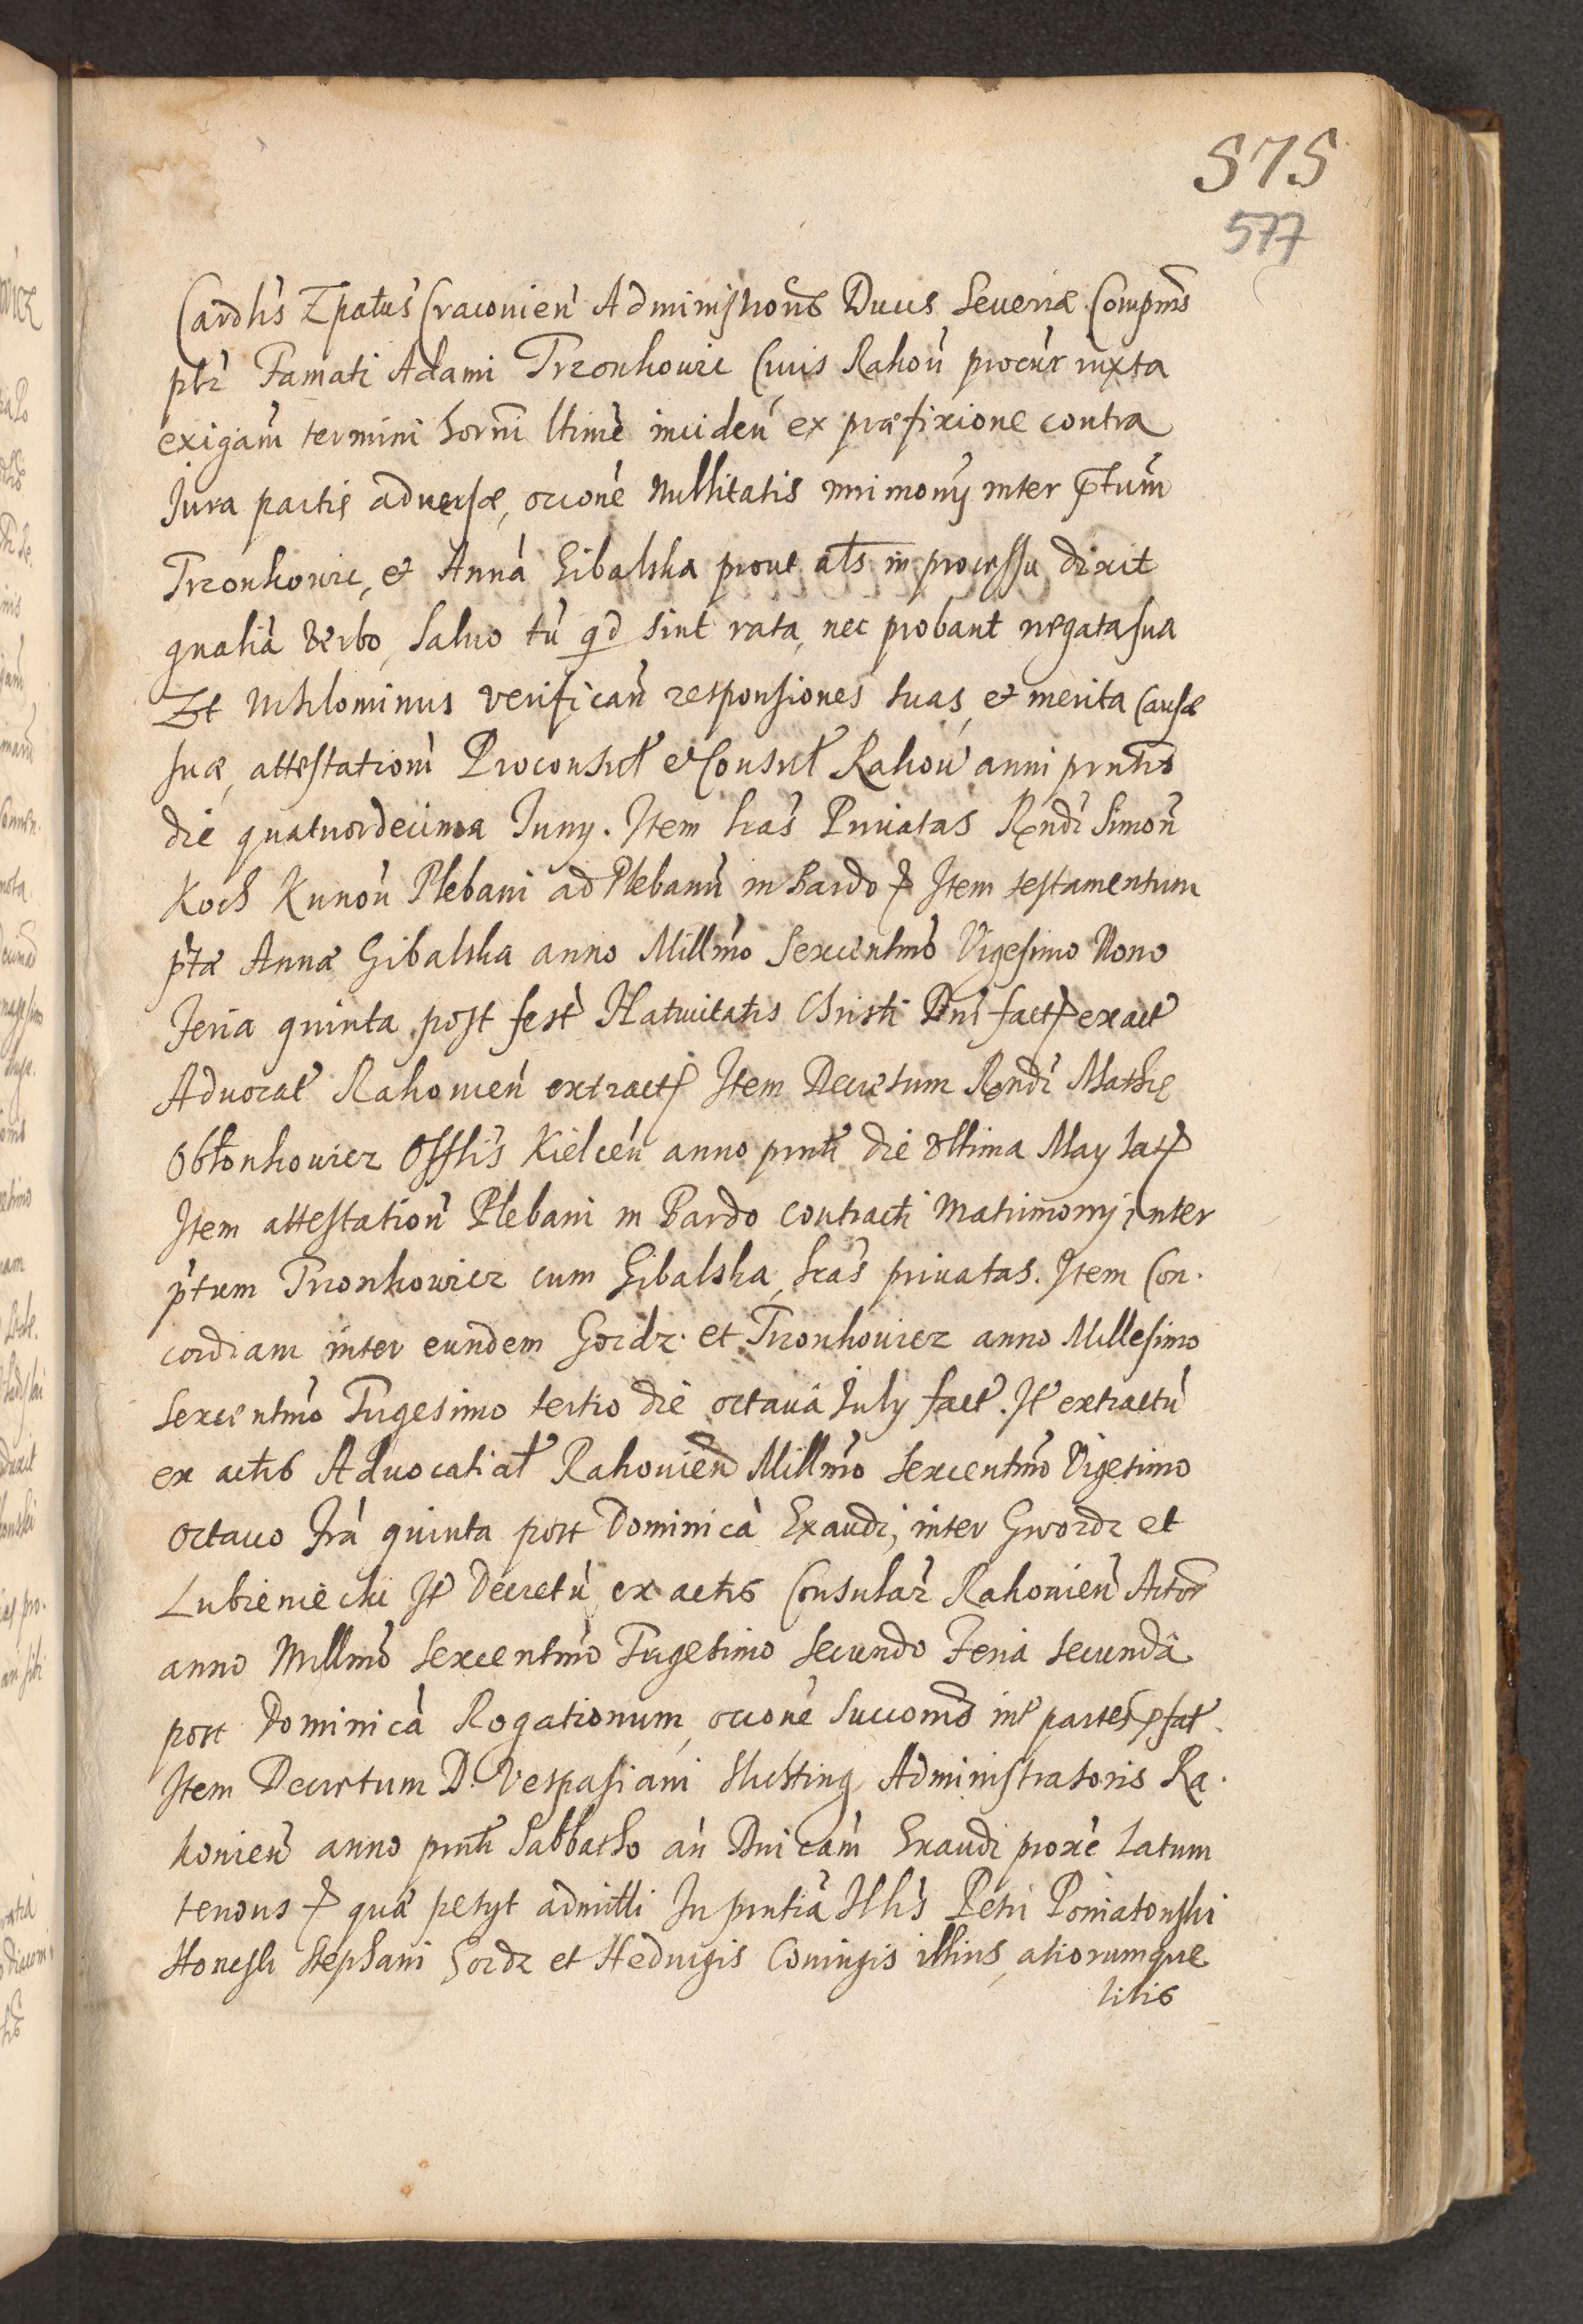 575
577
Cardlis Epatus Cracovien Administrons Ducis Severiæ Compns
pltr Famati Adami Trzonkowic Civis Rakov procur iuxta
exigam termini horni ltime inciden ex præfixione contra
Jura partis adversæ, occone Nullitatis mrimonij inter ptum
Trzonkowic, et Anna Gibalska prout als in processu dixit
gnalia verbo, salvo tn qd sint rata, nec probant negata sua
Et Nihilominus verifican responsiones suas, et merita Causæ
suæ, attestationi Proconsul et Consul Rakov anni prntis
die quatuordecima Juny. Item lras Privatas Rndi Simon
Koch Kunov Plebani ad Plebanu in Bardo Item testamentum
ptæ Annæ Gibalska anno Millmo Sexcentmo Vigesimo Nono
Feria quinta post fest Nativitatis Christi Dni fact ex act
Advocat Rakovien extract Item Decretum Rndi Mathiæ
Obłonkowicz Offlis Kielcen anno prnti die ultima May lat
Item attestation Plebani in Bardo contracti Matrimony inter
ptum Trzonkowicz cum Gibalska, lras privatas. Item Con.
cordiam inter eundem Gordz. et Trzonkowicz anno Millesimo
sexcentmo Trigesimo tertio die octava July fact. It extractu
ex actis Advocatial Rakovien Millmo sexcentmo Vigesimo
octavo fra quinta post Dominica Exaudi, inter Gwozdz et
Lubieniecki It Decretu ex actis Consular Rakovien Actor
anno Millmo sexcentmo Trigesimo secundo Feria secunda
post Dominica Rogationum, occone succoms int partes pfat.
Item Decretum D. Vespasiani Administratoris Ra.
kovien anno prnti Sabbatho an Dnicam Exaudi proxe latum
tenous quæ petyt admitti In prntia Illis Petri Poniatonski
Honesti Stephani Gozdz et Hedvigis Coniugis illius, aliorumque
litis